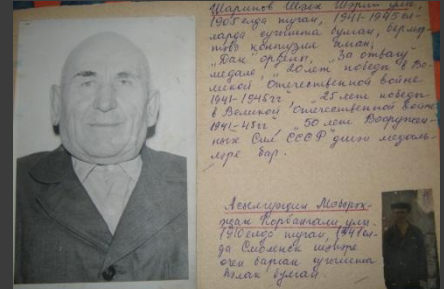 Шарипов Шәех Шәрип улы,
1905 елда туган, 1941-1945 ел-
ларда сугышта булган, бермәр-
тәбә контузия алган,
„Дан" ордены, „За отвагу"
медале, „20 лет победы в Ве-
ликой Отечественной войне
1941-1945 гг", „25 лет победы
в Великой Отечественной войне
1941-45 гг", „50 лет Вооружен-
ных Сил СССР" дигән медаль-
ләре бар.
Корбангали улы
1910 елда туган, 1941 ел-
да Смоленск шәһәре
өчен барган сугышта
һәлак булган.